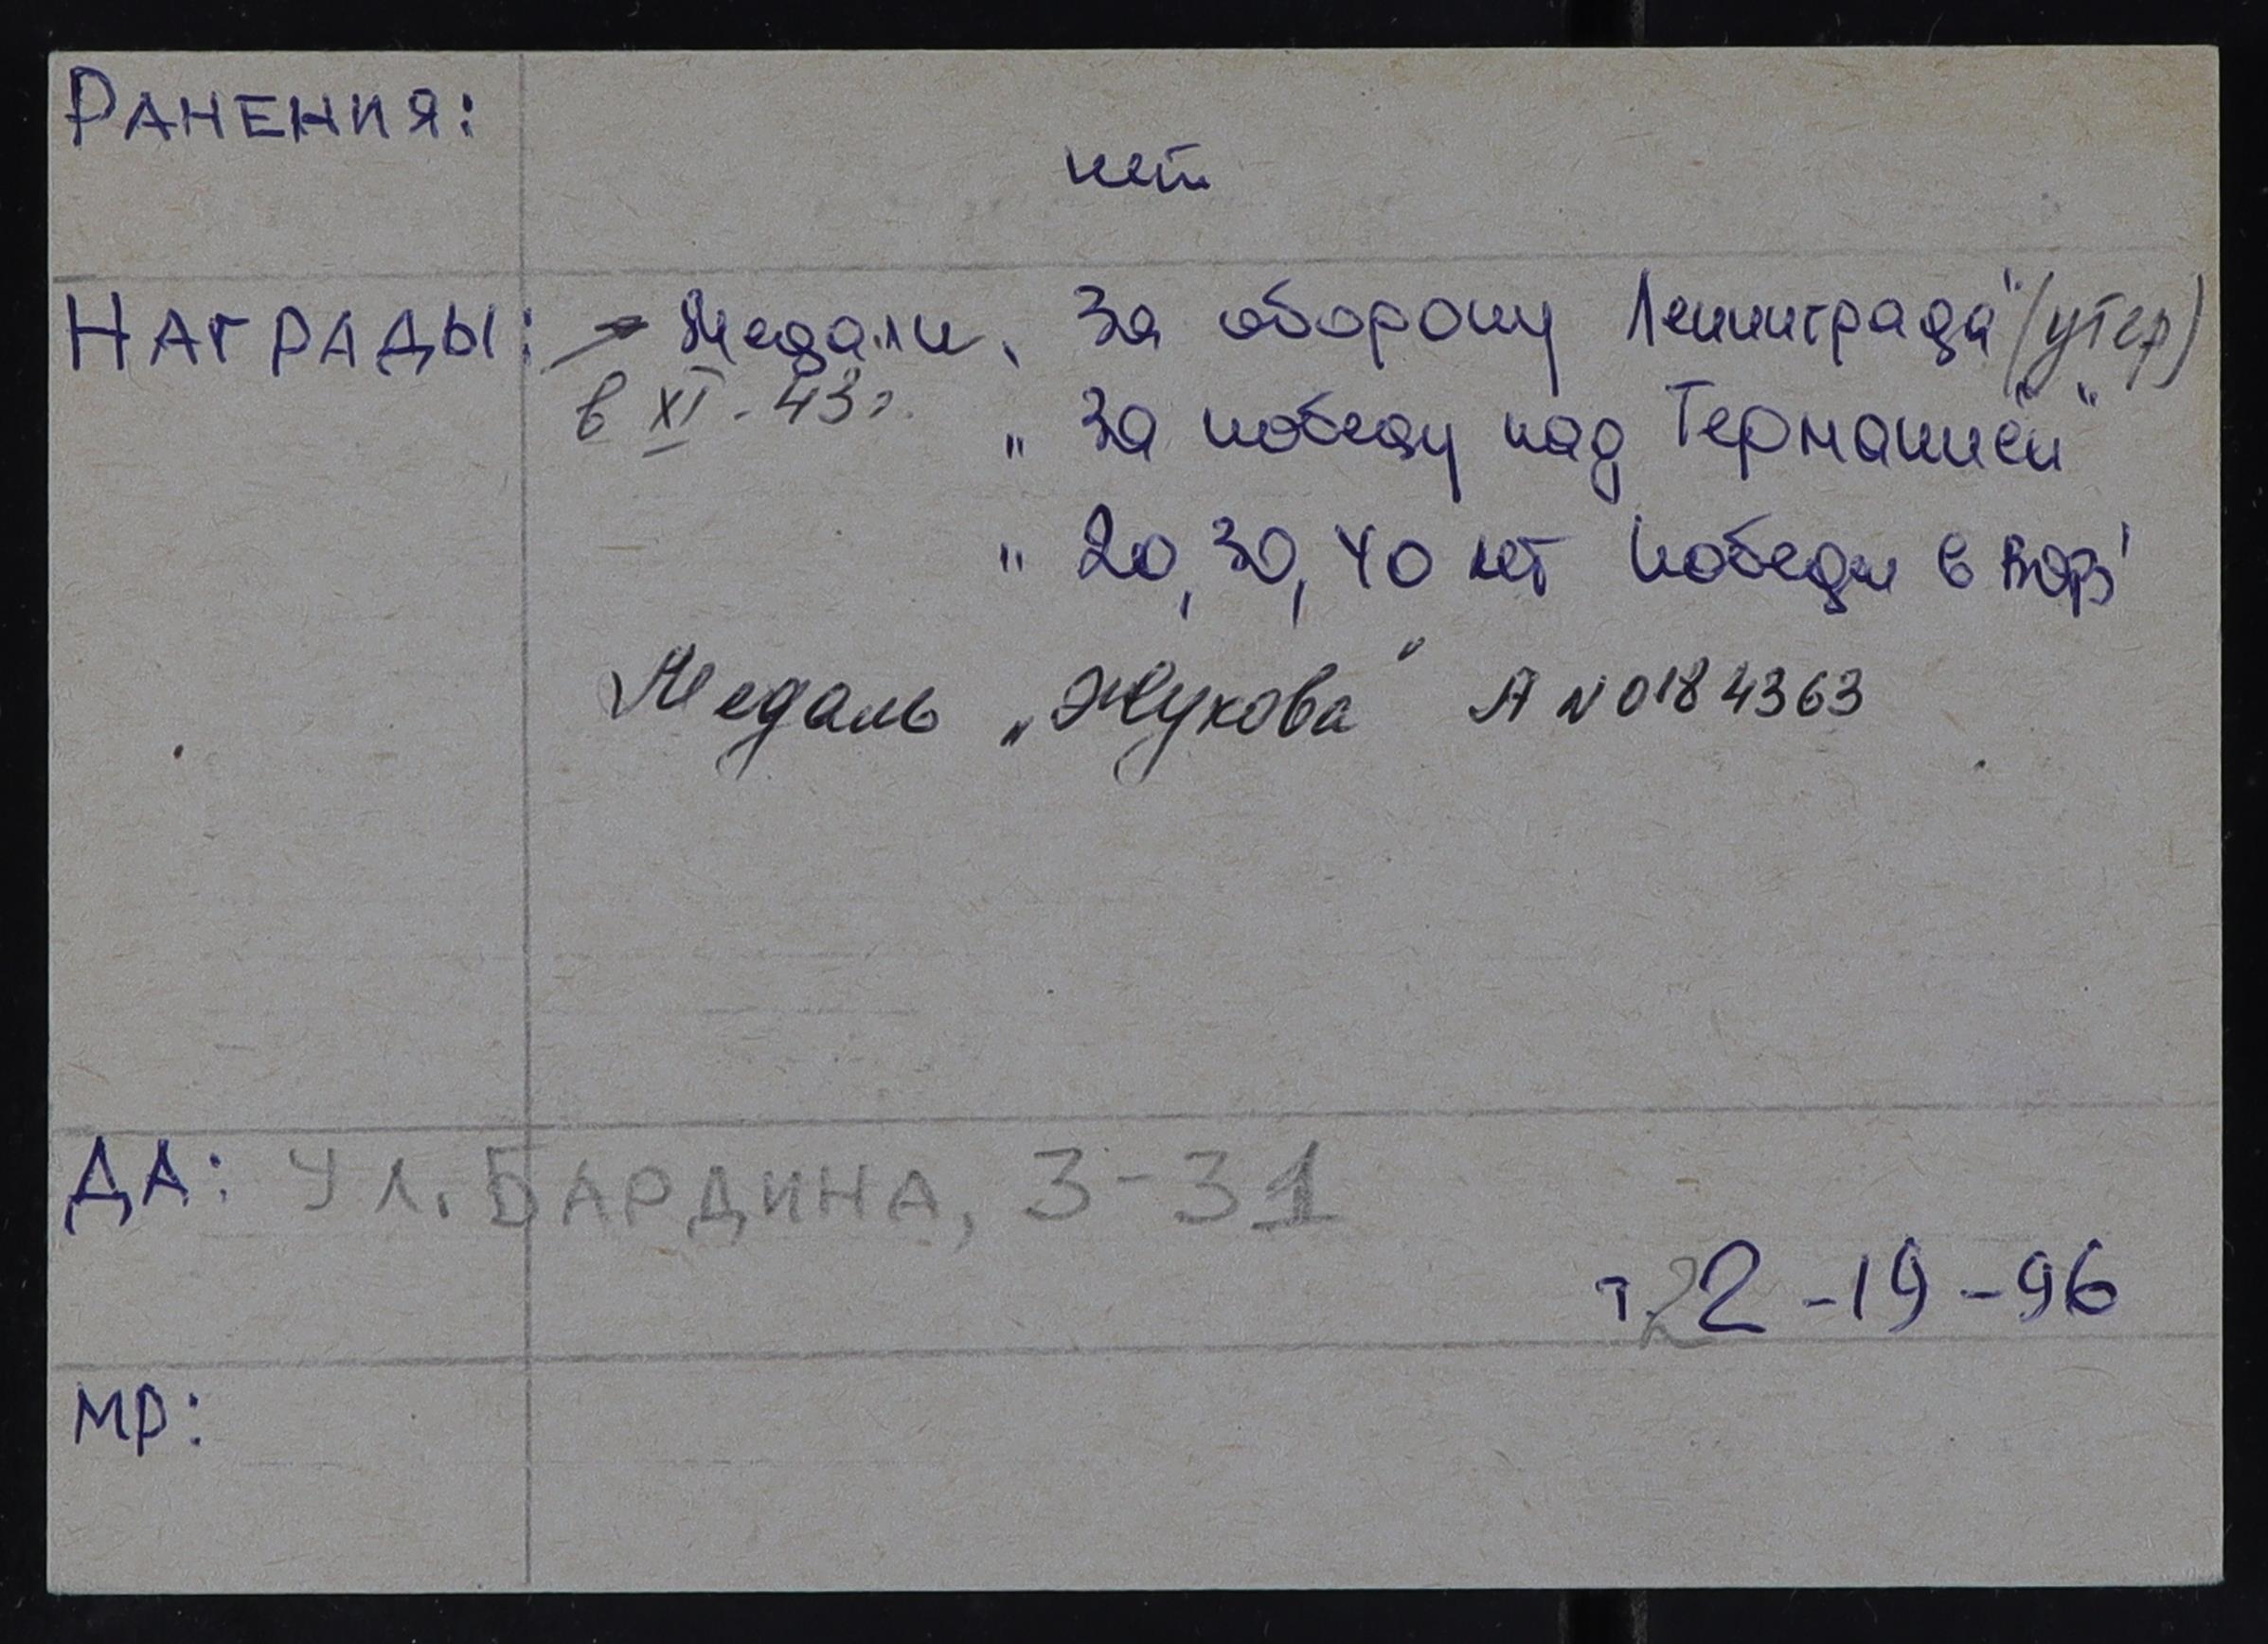 РАНЕНИЯ:
нет
НАГРАДЫ: Медали „За оборону Ленинграда" (утер)
в XI - 43 г.
„ За победу над Германией"
" 20, 30, 40 лет Победы в ВОВ"
Медаль „Жукова" А N 0184363
ДА: УЛ. БАРДИНА, 3-31
т. 22-19-96
МР: